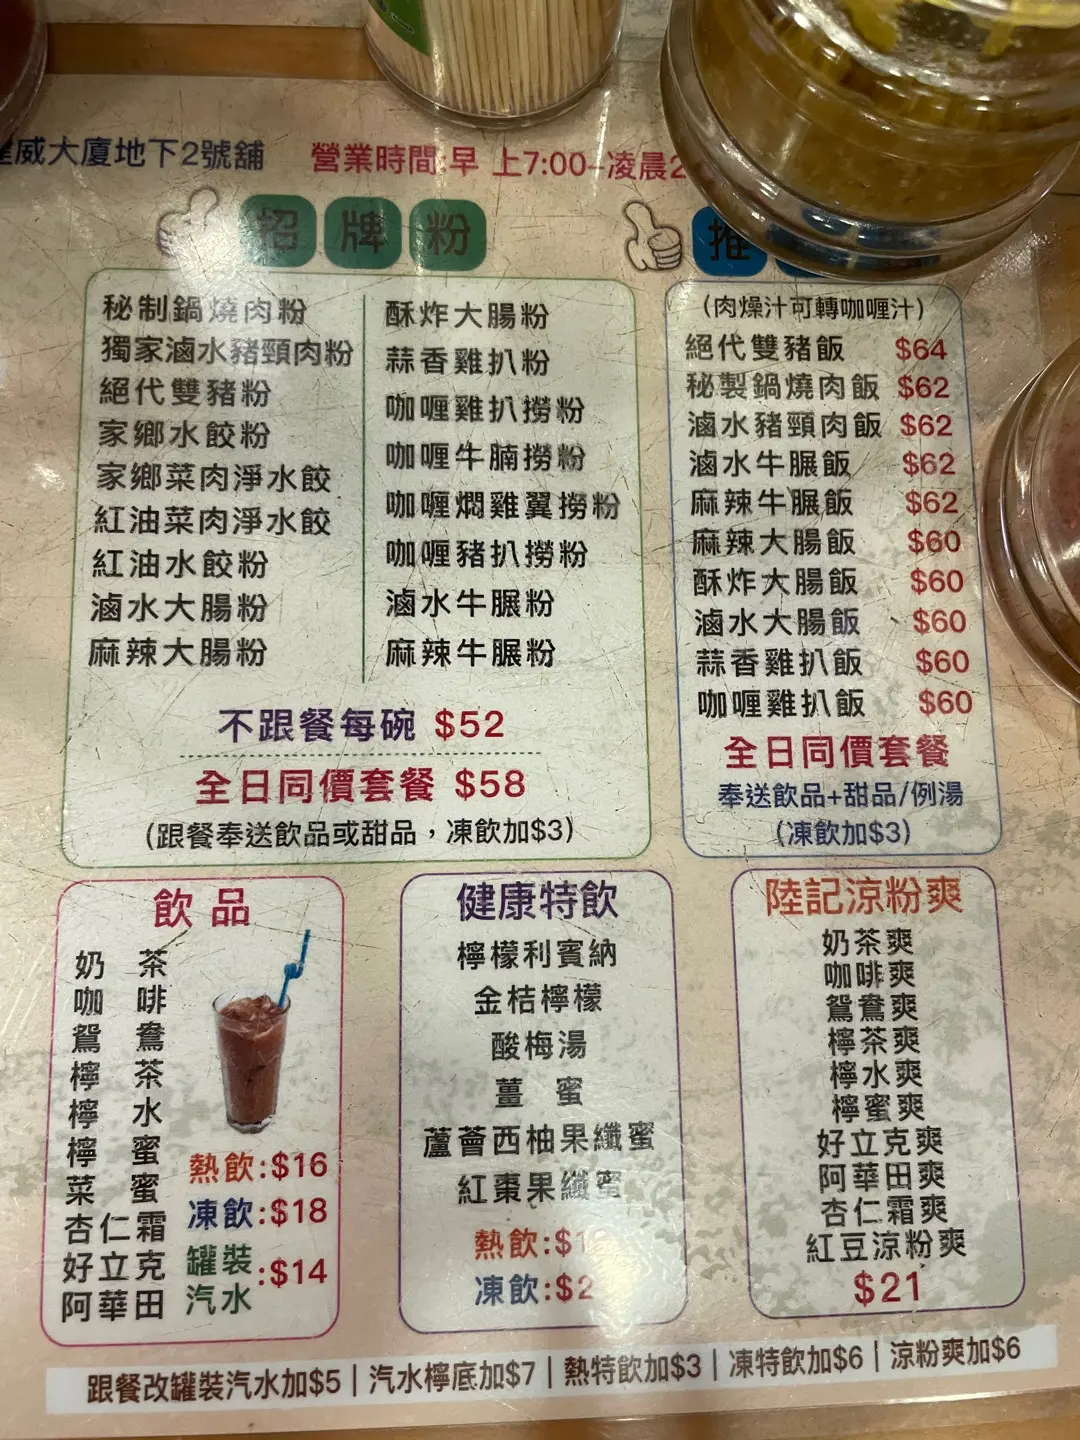 威大廈地下2號舖
營業時間:早 上7:00-凌晨2
招牌粉
秘制鍋燒肉粉
獨家滷水豬頸肉粉
絕代雙豬粉
家鄉水餃粉
家鄉菜肉淨水餃
紅油菜肉淨水餃
紅油水餃粉
滷水大腸粉
麻辣大腸粉
酥炸大腸粉
蒜香雞扒粉
咖喱雞扒撈粉
咖喱牛腩撈粉
咖喱燜雞翼撈粉
咖喱豬扒撈粉
滷水牛𦟌粉
麻辣牛𦟌粉
不跟餐每碗 $52
全日同價套餐 $58
(跟餐奉送飲品或甜品，凍飲加$3)
推
(肉燥汁可轉咖喱汁)
絕代雙豬飯 $64
秘製鍋燒肉飯 $62
滷水豬頸肉飯 $62
滷水牛𦟌飯 $62
麻辣牛𦟌飯 $62
麻辣大腸飯 $60
酥炸大腸飯 $60
滷水大腸飯 $60
蒜香雞扒飯 $60
咖喱雞扒飯 $60
全日同價套餐
奉送飲品+甜品/例湯
(凍飲加$3)
飲品
奶茶
咖啡
鴛鴦
檸茶
檸水
檸蜜
菜蜜
杏仁霜
好立克
阿華田
熱飲:$16
凍飲:$18
罐裝汽水:$14
健康特飲
檸檬利賓納
金桔檸檬
酸梅湯
薑蜜
蘆薈西柚果纖蜜
紅棗果纖蜜
熱飲:$1
凍飲:$2
陸記涼粉爽
奶茶爽
咖啡爽
鴛鴦爽
檸茶爽
檸水爽
檸蜜爽
好立克爽
阿華田爽
杏仁霜爽
紅豆涼粉爽
$21
跟餐改罐裝汽水加$5｜汽水檸底加$7｜熱特飲加$3｜凍特飲加$6｜涼粉爽加$6